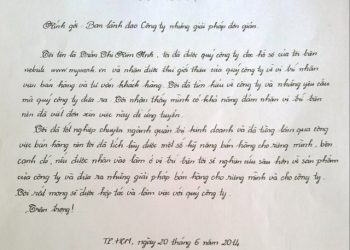 Kính gởi: Ban lãnh đạo Công ty những giải pháp đơn giản.
Tôi tên là Trần Thị Kim Anh, tôi đã được quý công ty đọc hồ sơ của tôi trên
website www.mywork.vn và nhận được thư giới thiệu của quý công ty về vị trí nhân
viên bán hàng và tư vấn khách hàng. Tôi đã tìm hiểu về công ty và những yêu cầu
mà quý công ty đưa ra. Tôi nhận thấy mình có khả năng đảm nhận vị trí trên
nên đã viết đơn xin việc này để ứng tuyển.
Tôi đã tốt nghiệp chuyên ngành quản trị kinh doanh và đã từng làm qua công
việc bán hàng nên tôi đã tích lũy được một số kỹ năng bán hàng cho riêng mình, bên
cạnh đó, nếu được nhận vào làm ở vị trí trên tôi sẽ nghiên cứu sâu hơn về sản phẩm
của công ty và đưa ra những giải pháp bán hàng cho riêng mình và cho công ty.
Tôi rất mong sẽ được hợp tác và làm việc với quý công ty.
Trân trọng!
TP. HCM, ngày 20 tháng 6 năm 2014